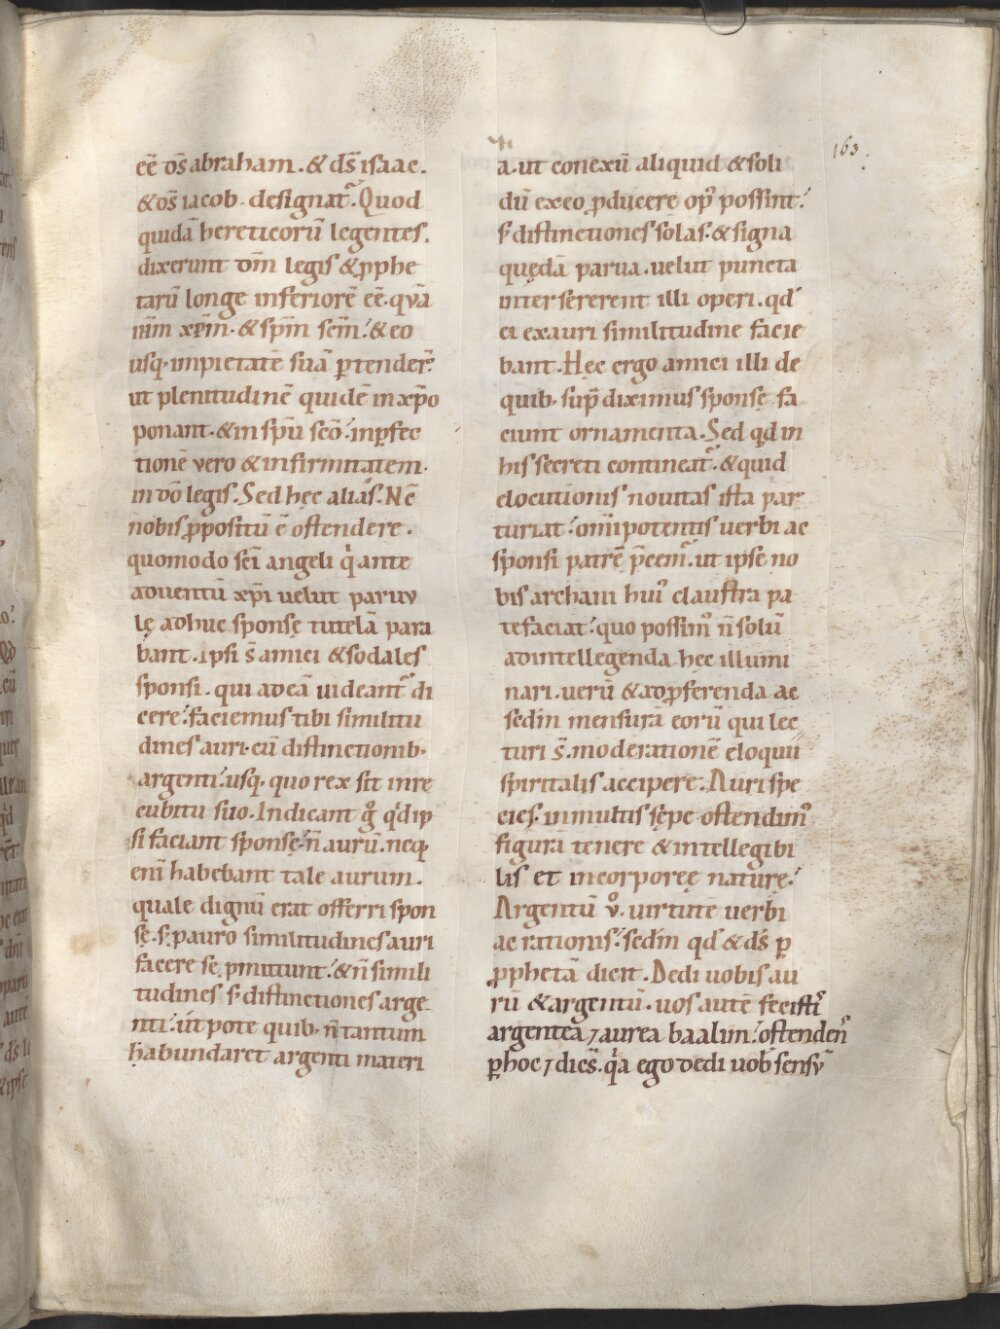 eē ds̄ abraham. & ds̄ isaac.
& ds̄ iacob. designat᷑. Quod
quidā hereticorū legentes.
dixerunt dm̄ legis & ꝓphe
tarū longe inferiorē eē. qvā
nr̄m xp̄m. & sp̄m sc̄m. & eo
usq; impietatē suā ꝑtender̄.
ut plenitudinē quidē in xp̄o
ponant. & in sp̄u sc̄o. inꝑfec
tionē vero & infirmitatem.
in dō legis. Sed hęc alias. Nc̄
nobis ꝓpositū ē ostendere.
quomodo sc̄i angeli q̇ ante
aduentū xp̄i uelut paruv
lę adhuc sponsę tutelā para
bant. ipsi s̄ amici & sodales
sponsi. qui ad eā uideant᷑ di
cere. faciemus tibi similitu
dines auri. cū distinctionib;
argenti. usq; quo rex sit in re
cubitu suo. Indicant g̊ qd̓ ip
si faciant sponsę. n̄ aurū. neq;
enī habebant tale aurum.
quale dignū erat offerri spon
sę. s; ꝓ auro similitudines auri
facere se ꝓmittunt. & n̄ simili
tudines s; distinctiones arge
nti. ut pote quib; n̄ tantum
habundaret argenti materi
163.
a. ut conexū aliquid & soli
dū ex eo ꝓducere op᷒ possint.
s; distinctiones solas. & signa
quędā parua. uelut puncta
intersererent illi operi. qd̓
ei ex auri similitudine facie
bant. Hęc ergo amici illi de
quib; sup̄ diximus sponsę fa
ciunt ornamenta. Sed qd̓ in
his secreti contineat᷑. & quid
elocutionis nouitas ista par
turiat. omīpotentis uerbi ac
sponsi patrē p̄cem᷑. ut ipse no
bis archani hui᷒ claustra pa
tefaciat. quo possim᷒ n̄ solū
ad intellegenda hec illumi
nari. uerū & ad ꝓferenda ac
sedm̄ mensurā eorū qui lec
turi s̄. moderationē eloquii
spiritalis accipere. Auri spe
cies. in multis sępe ostendim᷒
figurā tenere & intellegibi
lis et incorporeę naturę.
Argentū v̊. uirtutē uerbi
ac rationis. sedm̄ qd̓ & ds̄ ꝑ
ꝓphetā dicit. Dedi uobis au
rū & argentū. uos autē fecisti᷒
argentea ⁊ aurea baalim. ostenden᷒
ꝑ hoc ⁊ dicēs. q̇a ego dedi uob̄ sensv̄